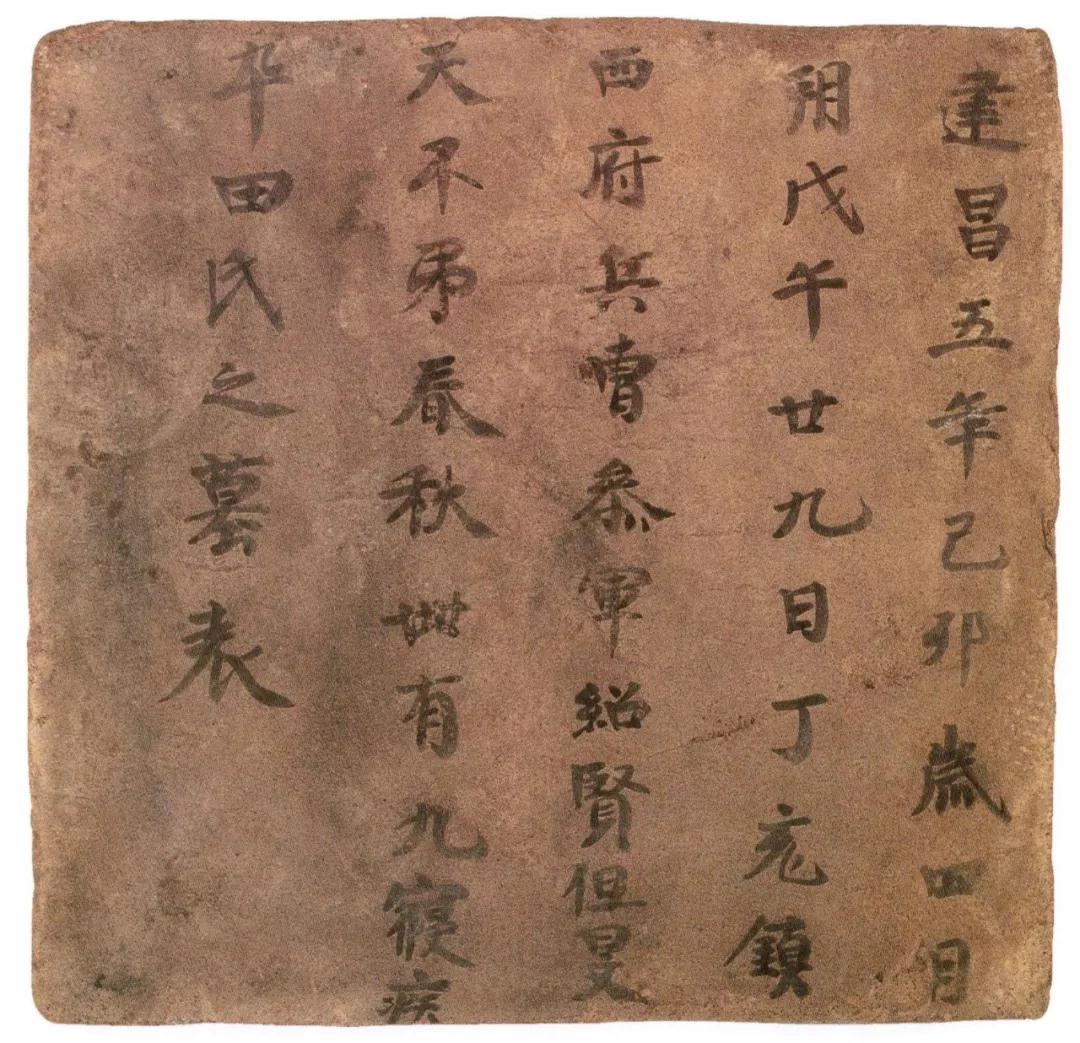 建昌五年己卯歲四月
朔戊午廿九日丁亥鎮
西府兵曹叅軍紹賢但旻
天不弔春秋卌有九寢疾
卒田氏之墓表